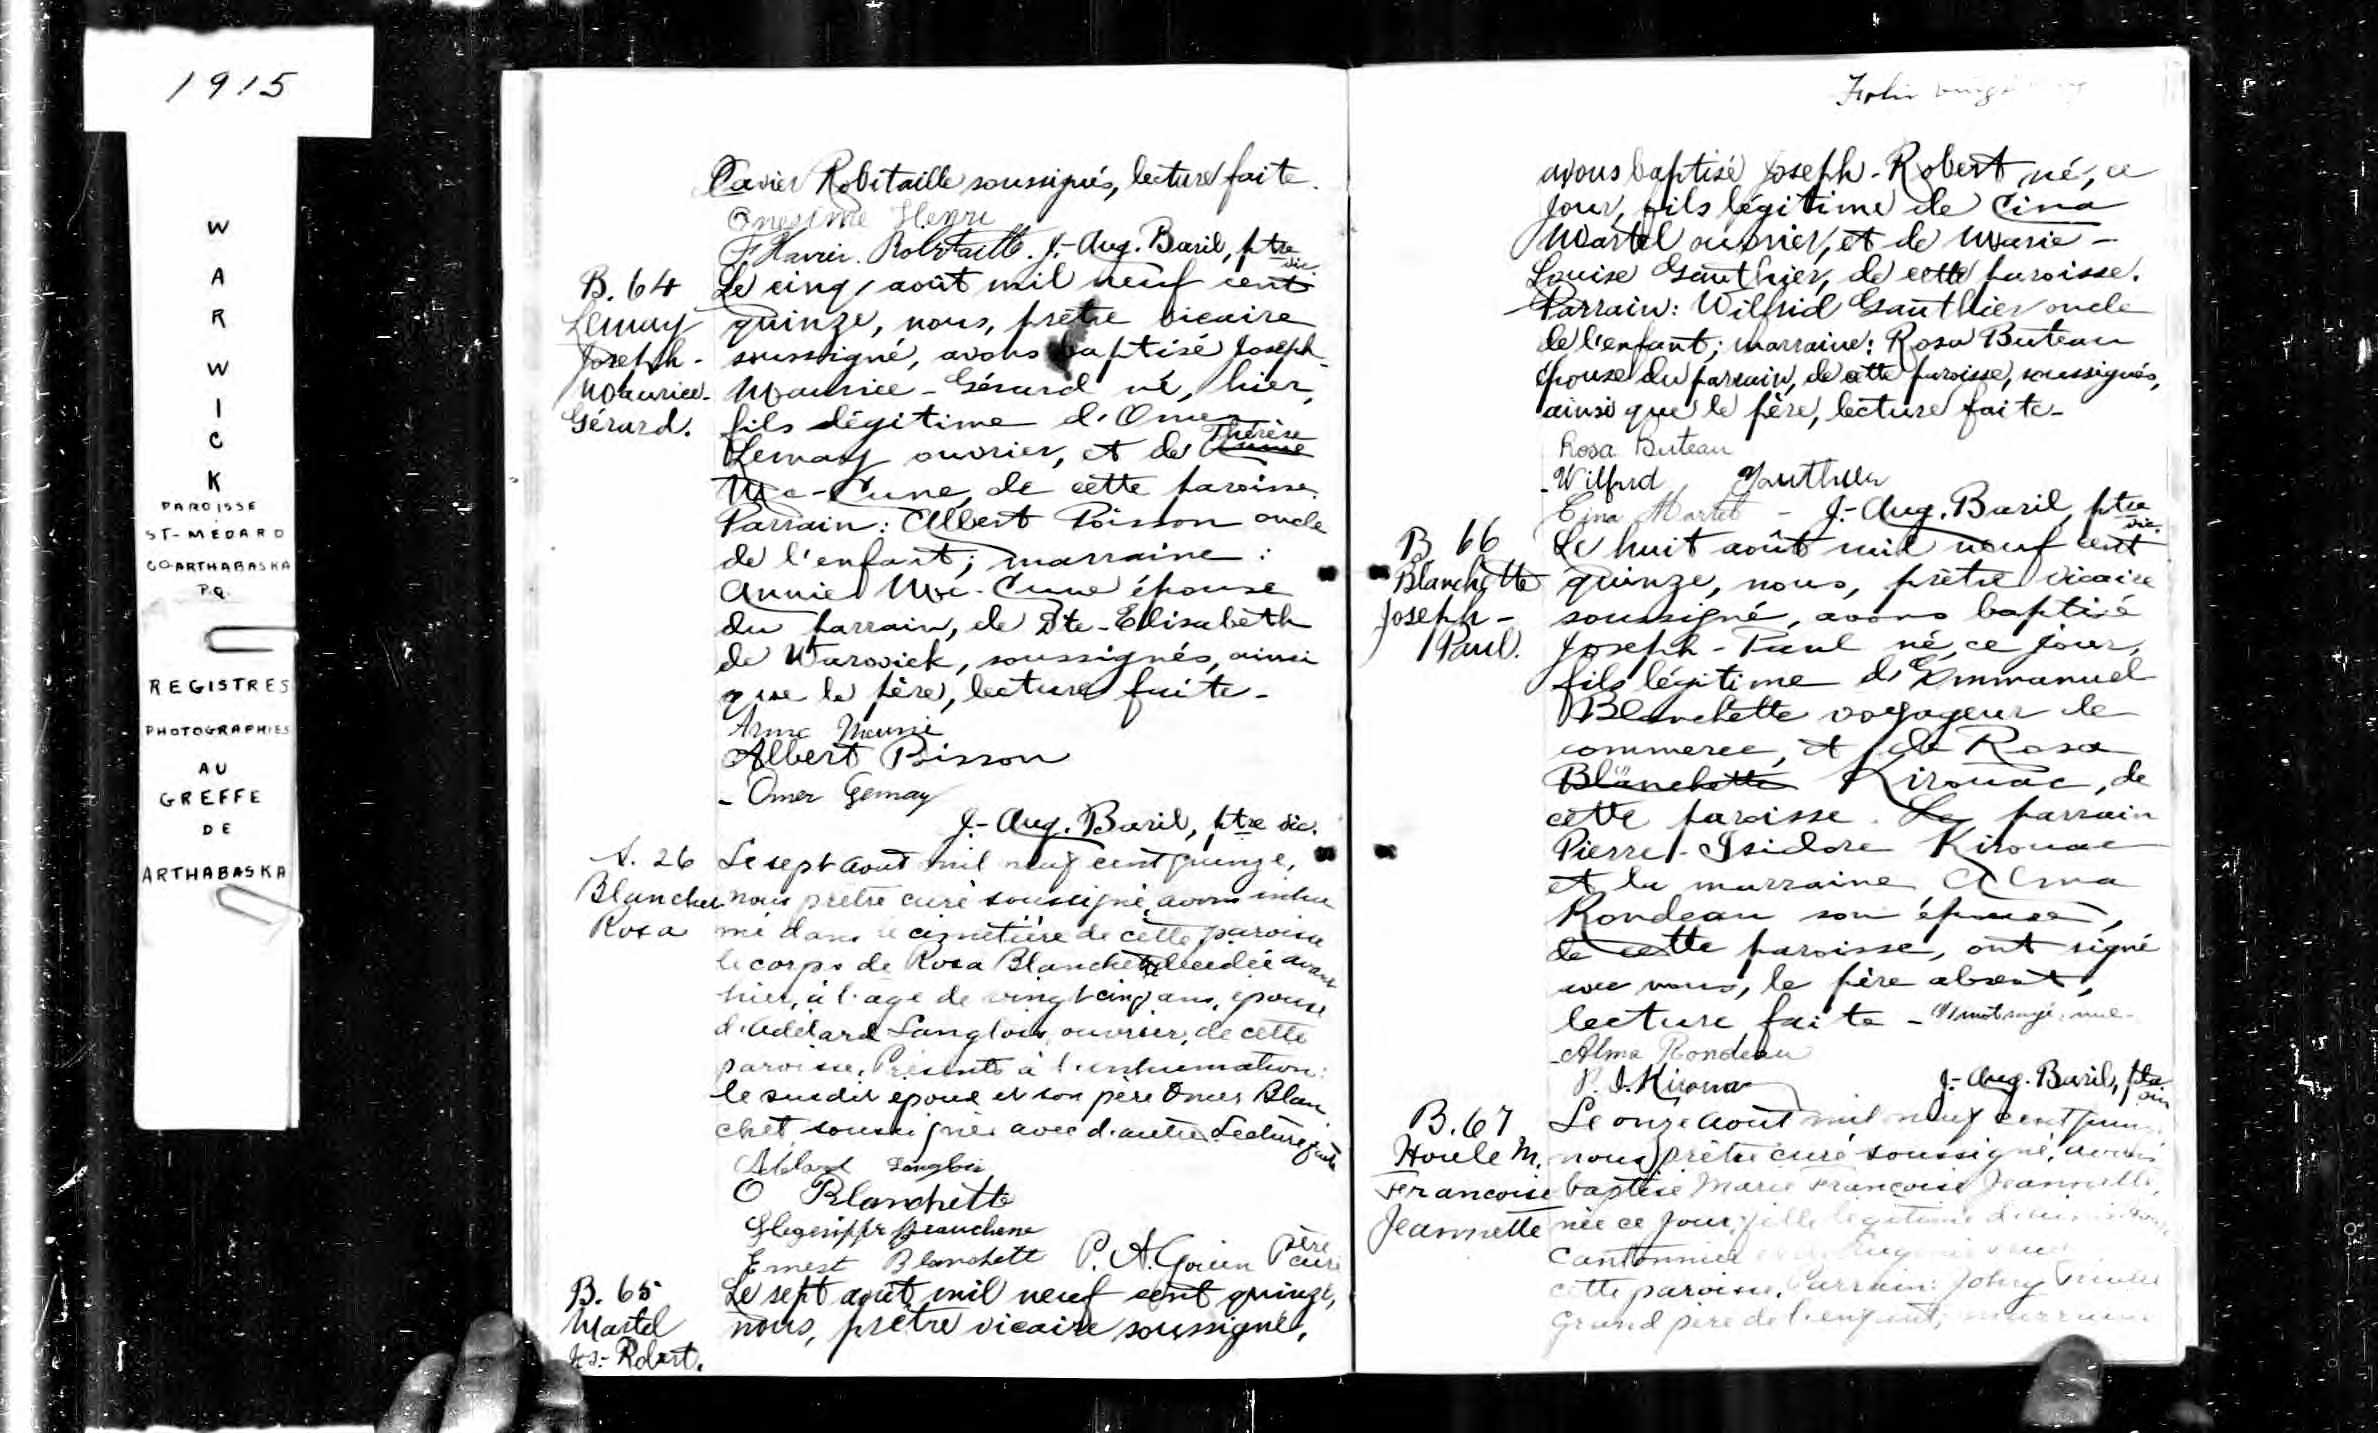 1915
W
A
R
W
I
C
K
PAROISSE
ST-MÉDARD
CO ARTHABASKA
P.Q.
REGISTRES
PHOTOGRAPHIES
AU
GREFFE
DE
ARTHABASKA
Xavier Robitaille soussignés, lecture faite.
Onesime Henri
F. Xavier Robitaille. J.-Aug. Baril, ptre vic.
B. 64
Lemay
Joseph-
Maurice-
Gérard.
Le cinq août mil neuf cent
quinze, nous, prêtre vicaire
soussigné, avons baptisé Joseph-
Maurice-Gérard né, hier,
fils légitime d'Omer
Lemay ouvrier, et de Thérèse
Mc-Cune, de cette paroisse.
Parrain: Albert Poisson oncle
de l'enfant; marraine:
Annie Mc-Cune épouse
du parrain, de Ste-Elisabeth
de Warwick, soussignés, ainsi
que le père, lecture faite-
Albert Poisson
- Omer Lemay
J.-Aug. Baril, ptre vic.
S. 26
Blanchet
Rosa
Le sept août mil neuf cent quinze,
nous prêtre curé soussigné avons inhu
mé dans le cimetière de cette paroisse
le corps de Rosa Blanchet décédée avant
hier, à l'âge de vingt cinq ans, épouse
d'Adélard Langlois, ouvrier, de cette
paroisse. Présents à l'inhumation:
le susdit époux et son père Omer Blan
chet soussignés avec d'autres. Lecture faite
Adélard Langlois
O Blanchette
Hégésippe Beauchene
Ernest Blanchette P. A. Gouin Ptre curé
B. 65
Martel
Jos.- Robert.
Le sept août mil neuf cent quinze,
nous, prêtre vicaire soussigné,
Folio
avons baptisé Joseph-Robert né, ce
jour, fils légitime de Cina
Martel ouvrier, et de Marie-
Louise Gauthier, de cette paroisse.
Parrain: Wilfrid Gauthier oncle
de l'enfant; marraine: Rosa Buteau
épouse du parrain, de cette paroisse, soussignés,
ainsi que le père, lecture faite-
Rosa Buteau
Wilfrid Gauthier
Cina Martel - J.-Aug. Baril, ptre vic.
B 66
Blanchette
Joseph-
Paul.
Le huit août mil neuf cent
quinze, nous, prêtre vicaire
soussigné, avons baptisé
Joseph-Paul né, ce jour,
fils légitime d'Emmanuel
Blanchette voyageur de
commerce, et de Rosa
Blanchette Kirouac, de
cette paroisse. Le parrain
Pierre-Isidore Kirouac
et la marraine Alma
Rondeau son épouse,
de cette paroisse, ont signé
avec nous, le père absent,
lecture faite - 1 mot rayé, nul-
Alma Rondeau
P. I. Kirouac J.-Aug. Baril, ptre vic
B. 67
Houle M.
Francoise
Jeannette
Le onze août mil neuf cent
nous prêtre curé soussigné, avons
baptisé Marie Françoise Jeannette,
née ce jour, fille légitime
Cantonnier
cette paroisse. Parrain: Johny
Grand père de l'enfant; marraine